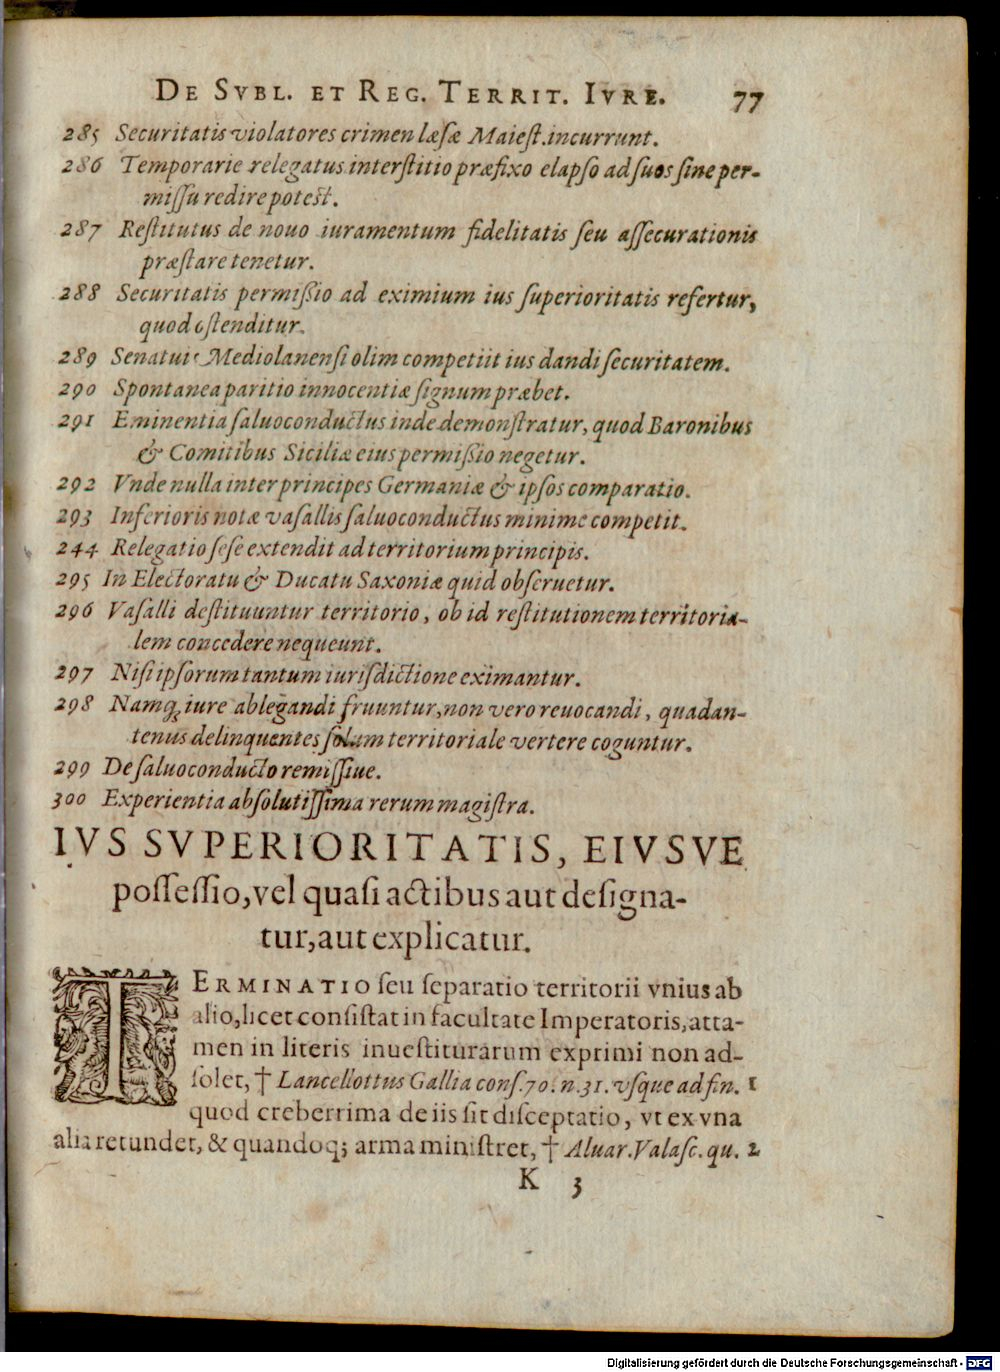 DE SVBL. ET REG. TERRIT. IVRE. 77
285 Securitatis violatores crimen læsæ Maiest. incurrunt.
286 Temporarie relegatus interstitio præfixo elapso ad suos sine per-
missu redire potest.
287 Restitutus de nouo iuramentum fidelitatis seu assecurationis
præstare tenetur.
288 Securitatis permißio ad eximium ius superioritatis refertur,
quod ostenditur.
289 Senatui Mediolanensi olim competiit ius dandi securitatem.
290 Spontanea paritio innocentiæ signum præbet.
291 Eminentia saluoconductus inde demonstratur, quod Baronibus
& Comitibus Siciliæ eius permißio negetur.
292 Vnde nulla inter principes Germaniæ & ipsos comparatio.
293 Inferioris notæ vasallis saluoconductus minime competit.
244 Relegatio sese extendit ad territorium principis.
295 In Electoratu & Ducatu Saxoniæ quid obseruetur.
296 Vasalli destituuntur territorio, ob id restitutionem territoria-
lem concedere nequeunt.
297 Nisi ipsorum tantum iurisdictione eximantur.
298 Namq; iure ablegandi fruuntur, non vero reuocandi, quadan-
tenus delinquentes solum territoriale vertere coguntur.
299 De saluoconducto remissiue.
300 Experientia absolutissima rerum magistra.
IVS SVPERIORITATIS, EIVSVE
possessio, vel quasi actibus aut designa-
tur, aut explicatur.
TERMINATIO seu separatio territorii vnius ab
alio, licet consistat in facultate Imperatoris, atta-
men in literis inuestiturarum exprimi non ad-
solet, † Lancellottus Gallia cons. 70. n. 31. vsque ad fin. 1
quod creberrima de iis sit disceptatio, vt ex vna
alia retundet, & quandoq; arma ministret, † Aluar. Valasc. qu. 2
K 3
Digitalisierung gefördert durch die Deutsche Forschungsgemeinschaft - DFG